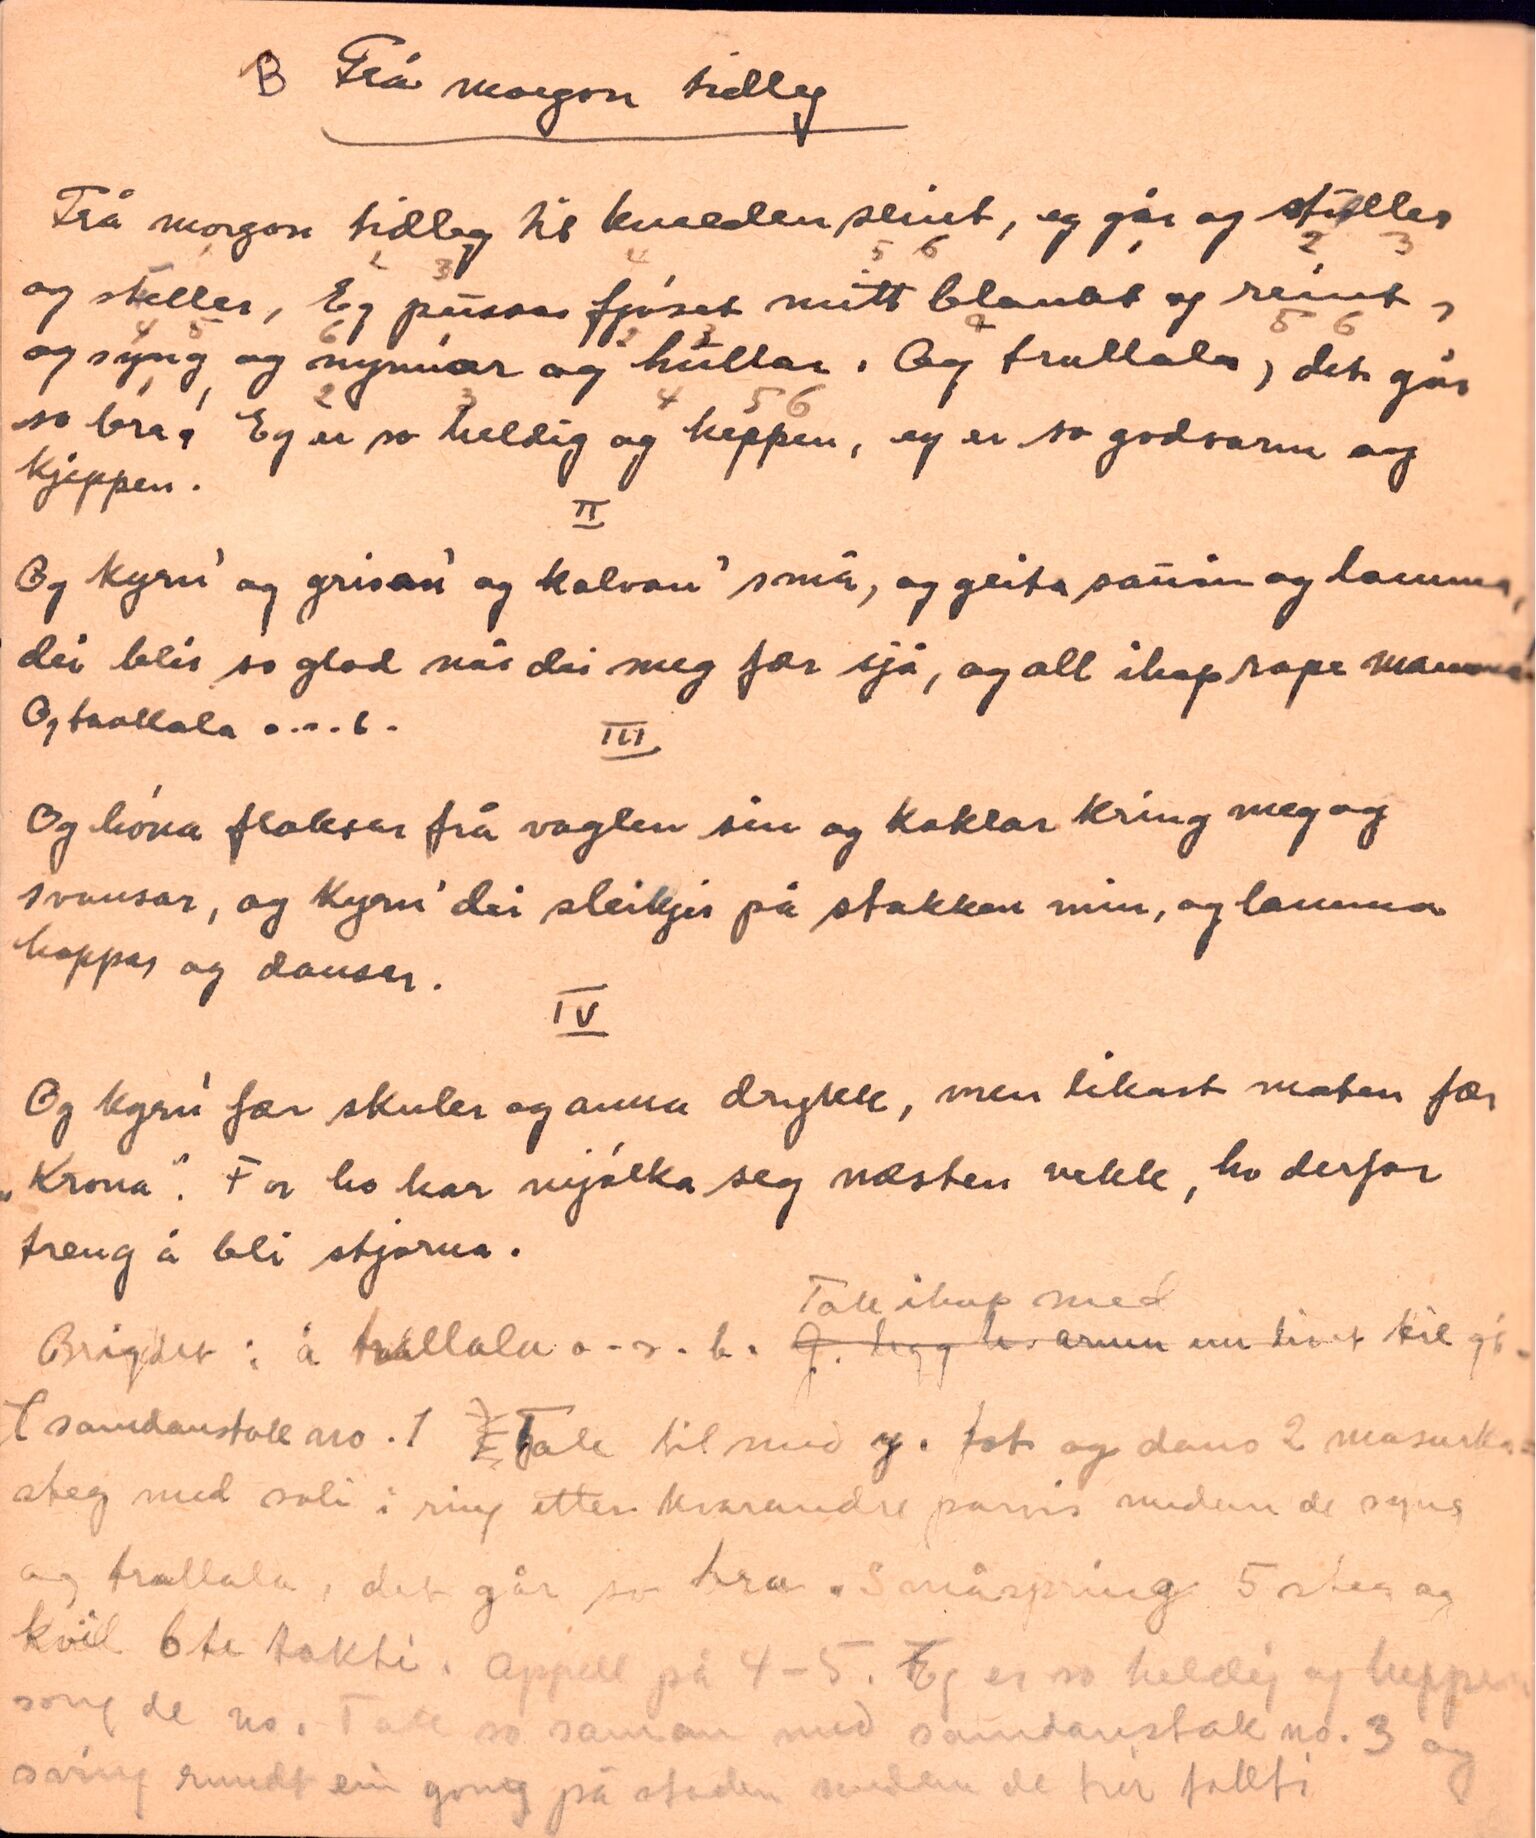 B Frå morgon tidleg
Frå morgon tidleg til kvelden seint, eg går og stuller
5 6 2 3
2 3 4
og steller, Eg pussar fjøset mitt blankt og reint,
4 5 6 2 3 4 5 6
og syng og nynnar og hullar. Og trullala, det går
2 3 4 5 6
so bra! Eg er so heldig og heppen, eg er so godvarm og
kjeppen.
II
Og kyrn' og grisan' og kalvan' små, og geita sauin og lamma,
dei blir so glad når dei meg fær sjå, og all ihop rape mamma
Og trallala o.s.b.
III
Og höna flaksar frå vaglen sin og kaklar kring meg og
svansar, og kyrn' dei sleikjer på stakken min, og lamma
hoppar og dansar.
IV
Og kyrn' fær skuler og anna drykk, men likast maten fær
„Krona". For ho har mjólka seg næsten vekk, ho derfor
treng å bli stjorna.
Tak ihop med
Brigdet: å trallala o.s.b. g. legg h. armen um livet til gj.
samdanstak no. 1 Tak til med y. fot og dans 2 masurka=
steg med soli i ring etter kvarandre parvis medan de syng
og trallala, det går so bra. Småspring 5 steg og
kvil 6te takti. Appell på 4-5. Eg er so heldig og heppen
song de no. Tak so saman med samdanstak no. 3 og
sving rundt ein gong på staden medan de trör takti